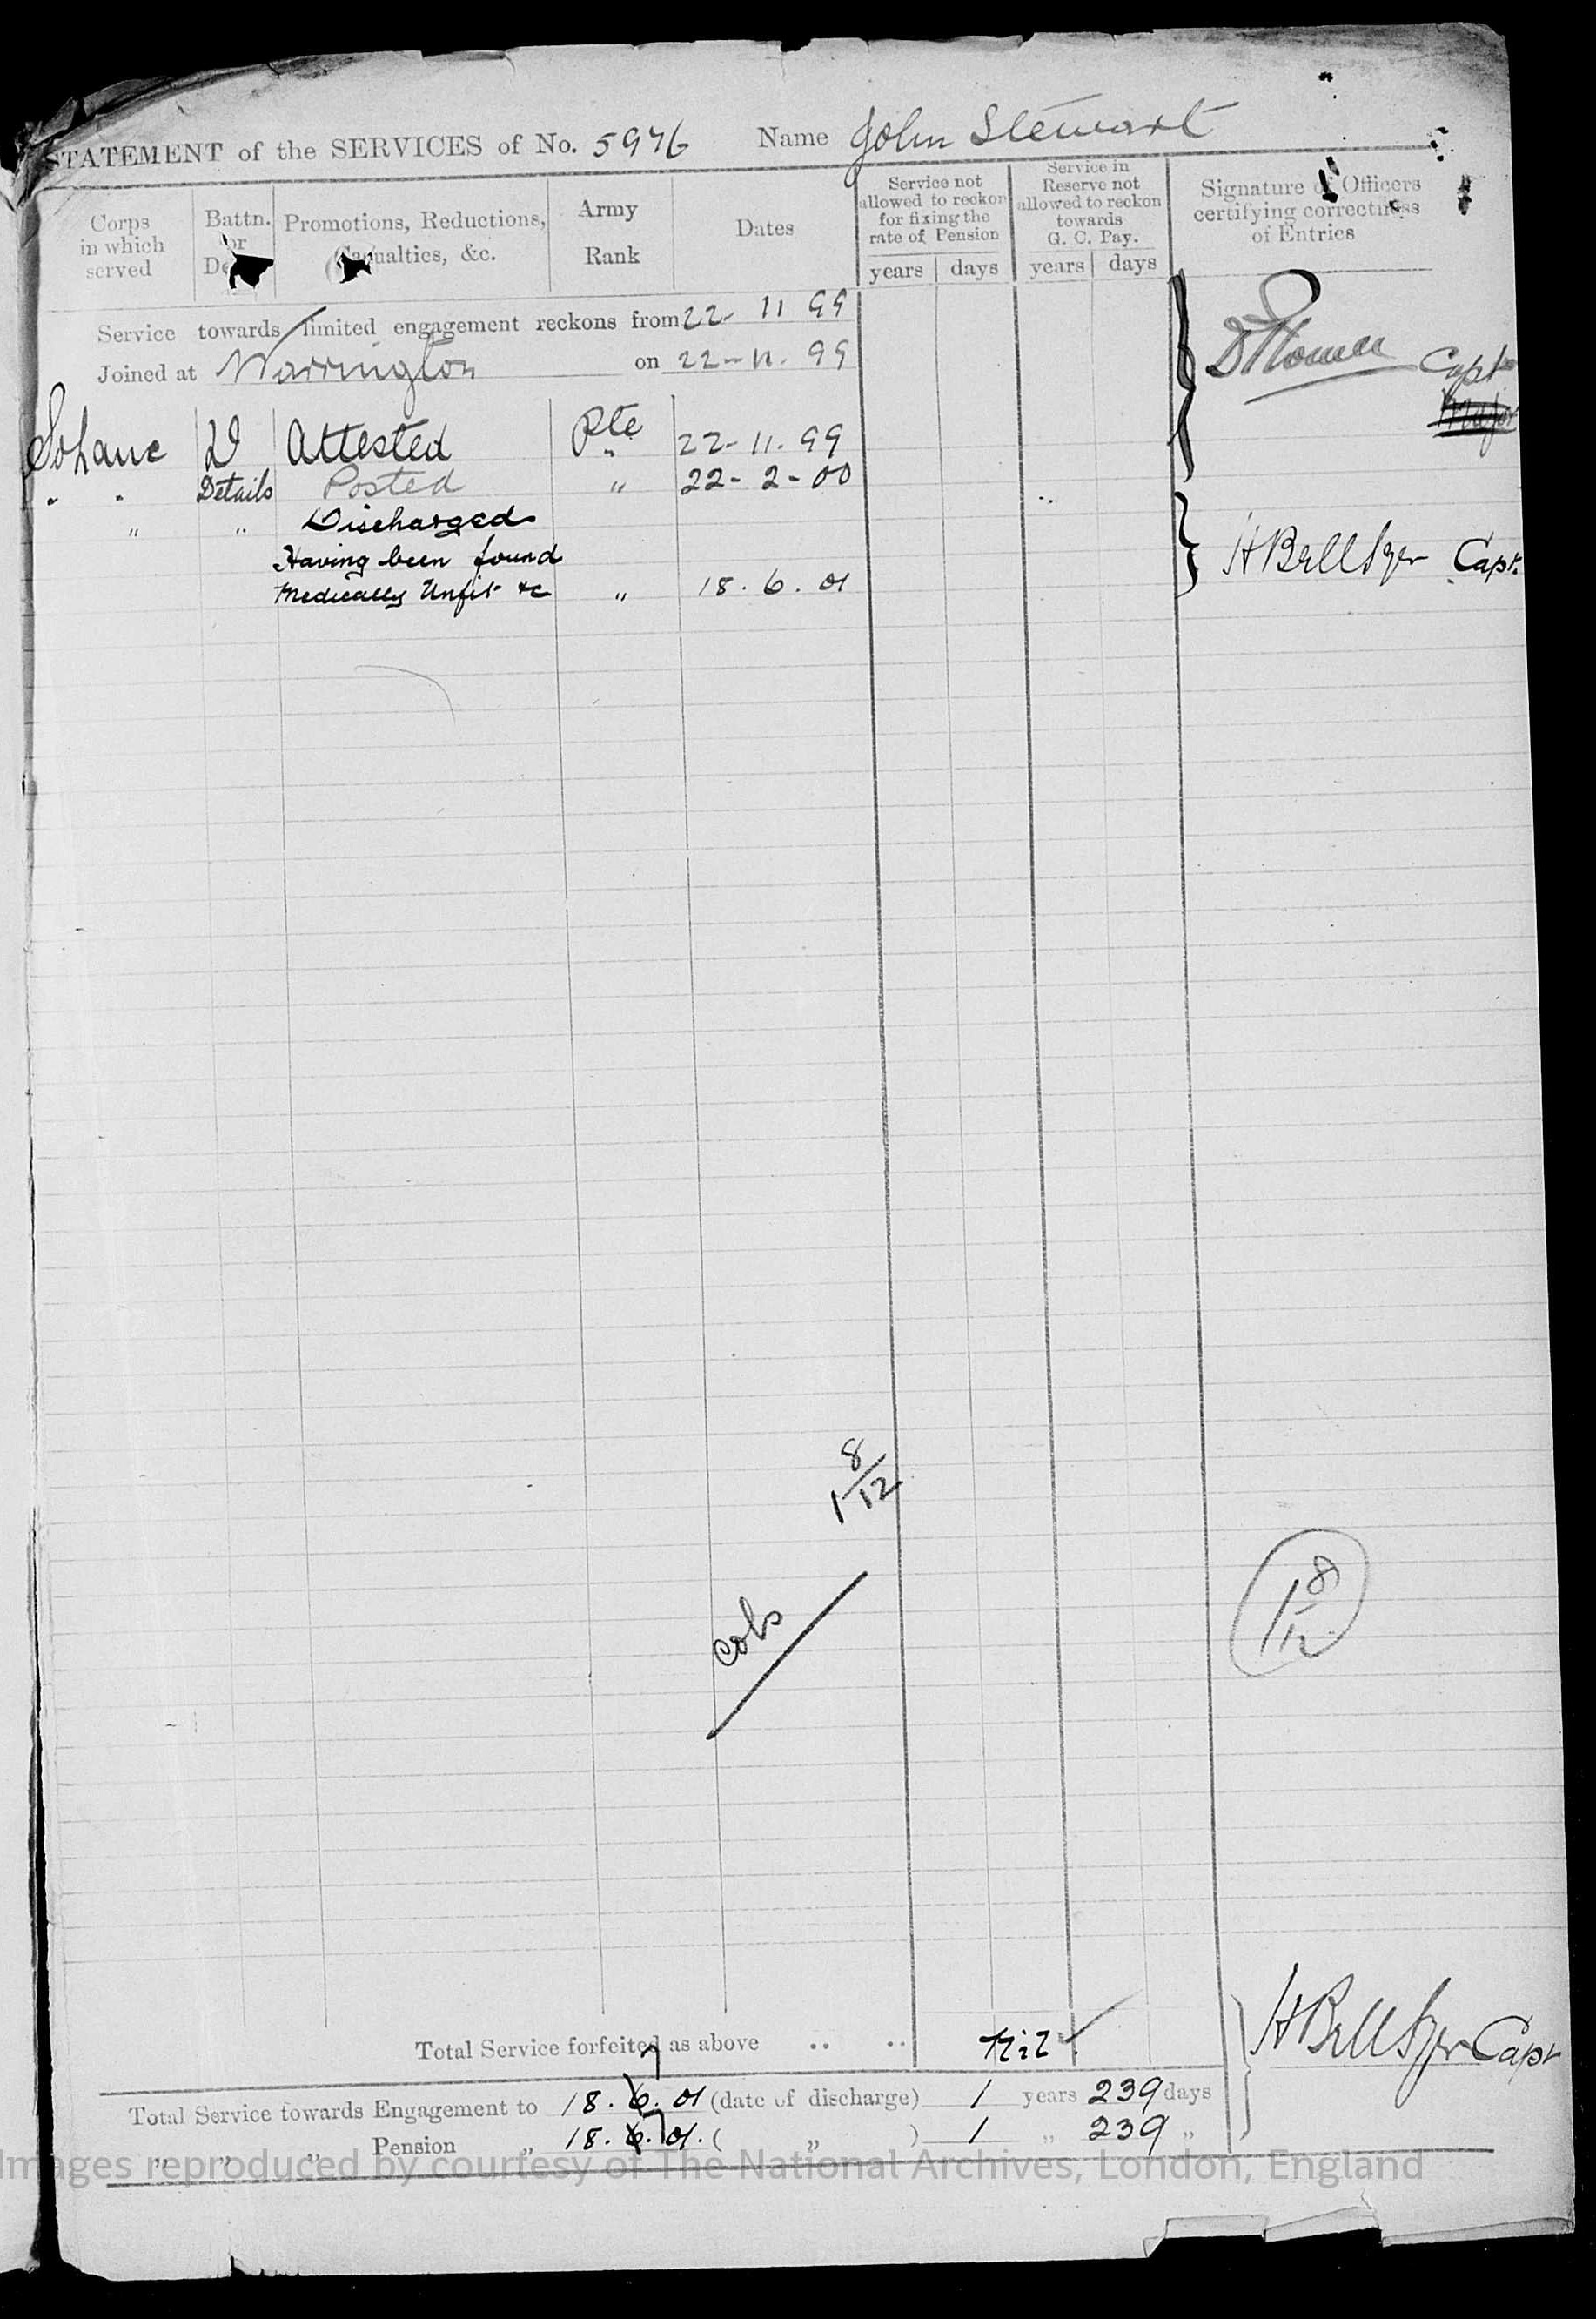 STATEMENT of the SERVICES of No. 5976 Name John Stewart
Corps in which served
Battn. or
Promotions, Reductions, Casualties, &c.
Army Rank
Dates
Service not allowed to reckon for fixing the rate of Pension
years days
Service in Reserve not allowed to reckon towards G. C. Pay.
years days
Signature of Officers certifying correctness of Entries
Service towards limited engagement reckons from 22- 11 99
Joined at Warrington on 22-11. 99
Capt
Major
So Lanc D Attested Pte 22-11.99
" " Details Posted " 22-2-00
" " Discharged
Having been found
Medically Unfit &c " 18.6.01
Capt.
1 8/12
1 8/12
Total Service forfeited as above .. .. Nil
Capt
7
Total Service towards Engagement to 18.6.01 (date of discharge) 1 years 239 days
" " " Pension " 18.6.7 01. ( " ) 1 " 239 "
Images reproduced by courtesy of The National Archives, London, England